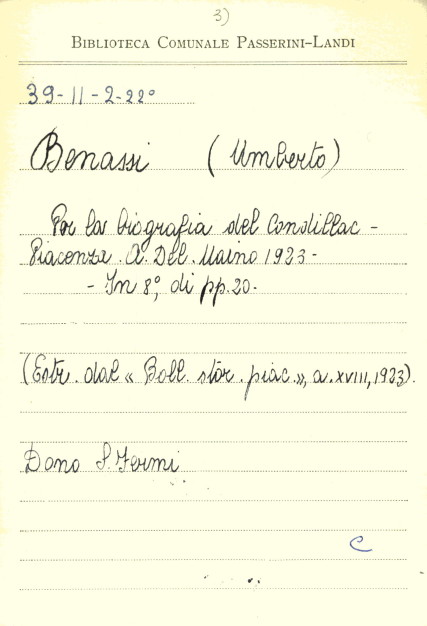 3)
BIBLIOTECA COMUNALE PASSERINI-LANDI
39-11-2-22°
Benassi (Umberto)
Per la biografia del Condillac -
Piacenza. A. Del. Maino 1923-
- In 8°, di pp. 20.
(Estr. dal « Boll. stor. piac. », a. XVIII, 1923).
Dono S. Fermi
C